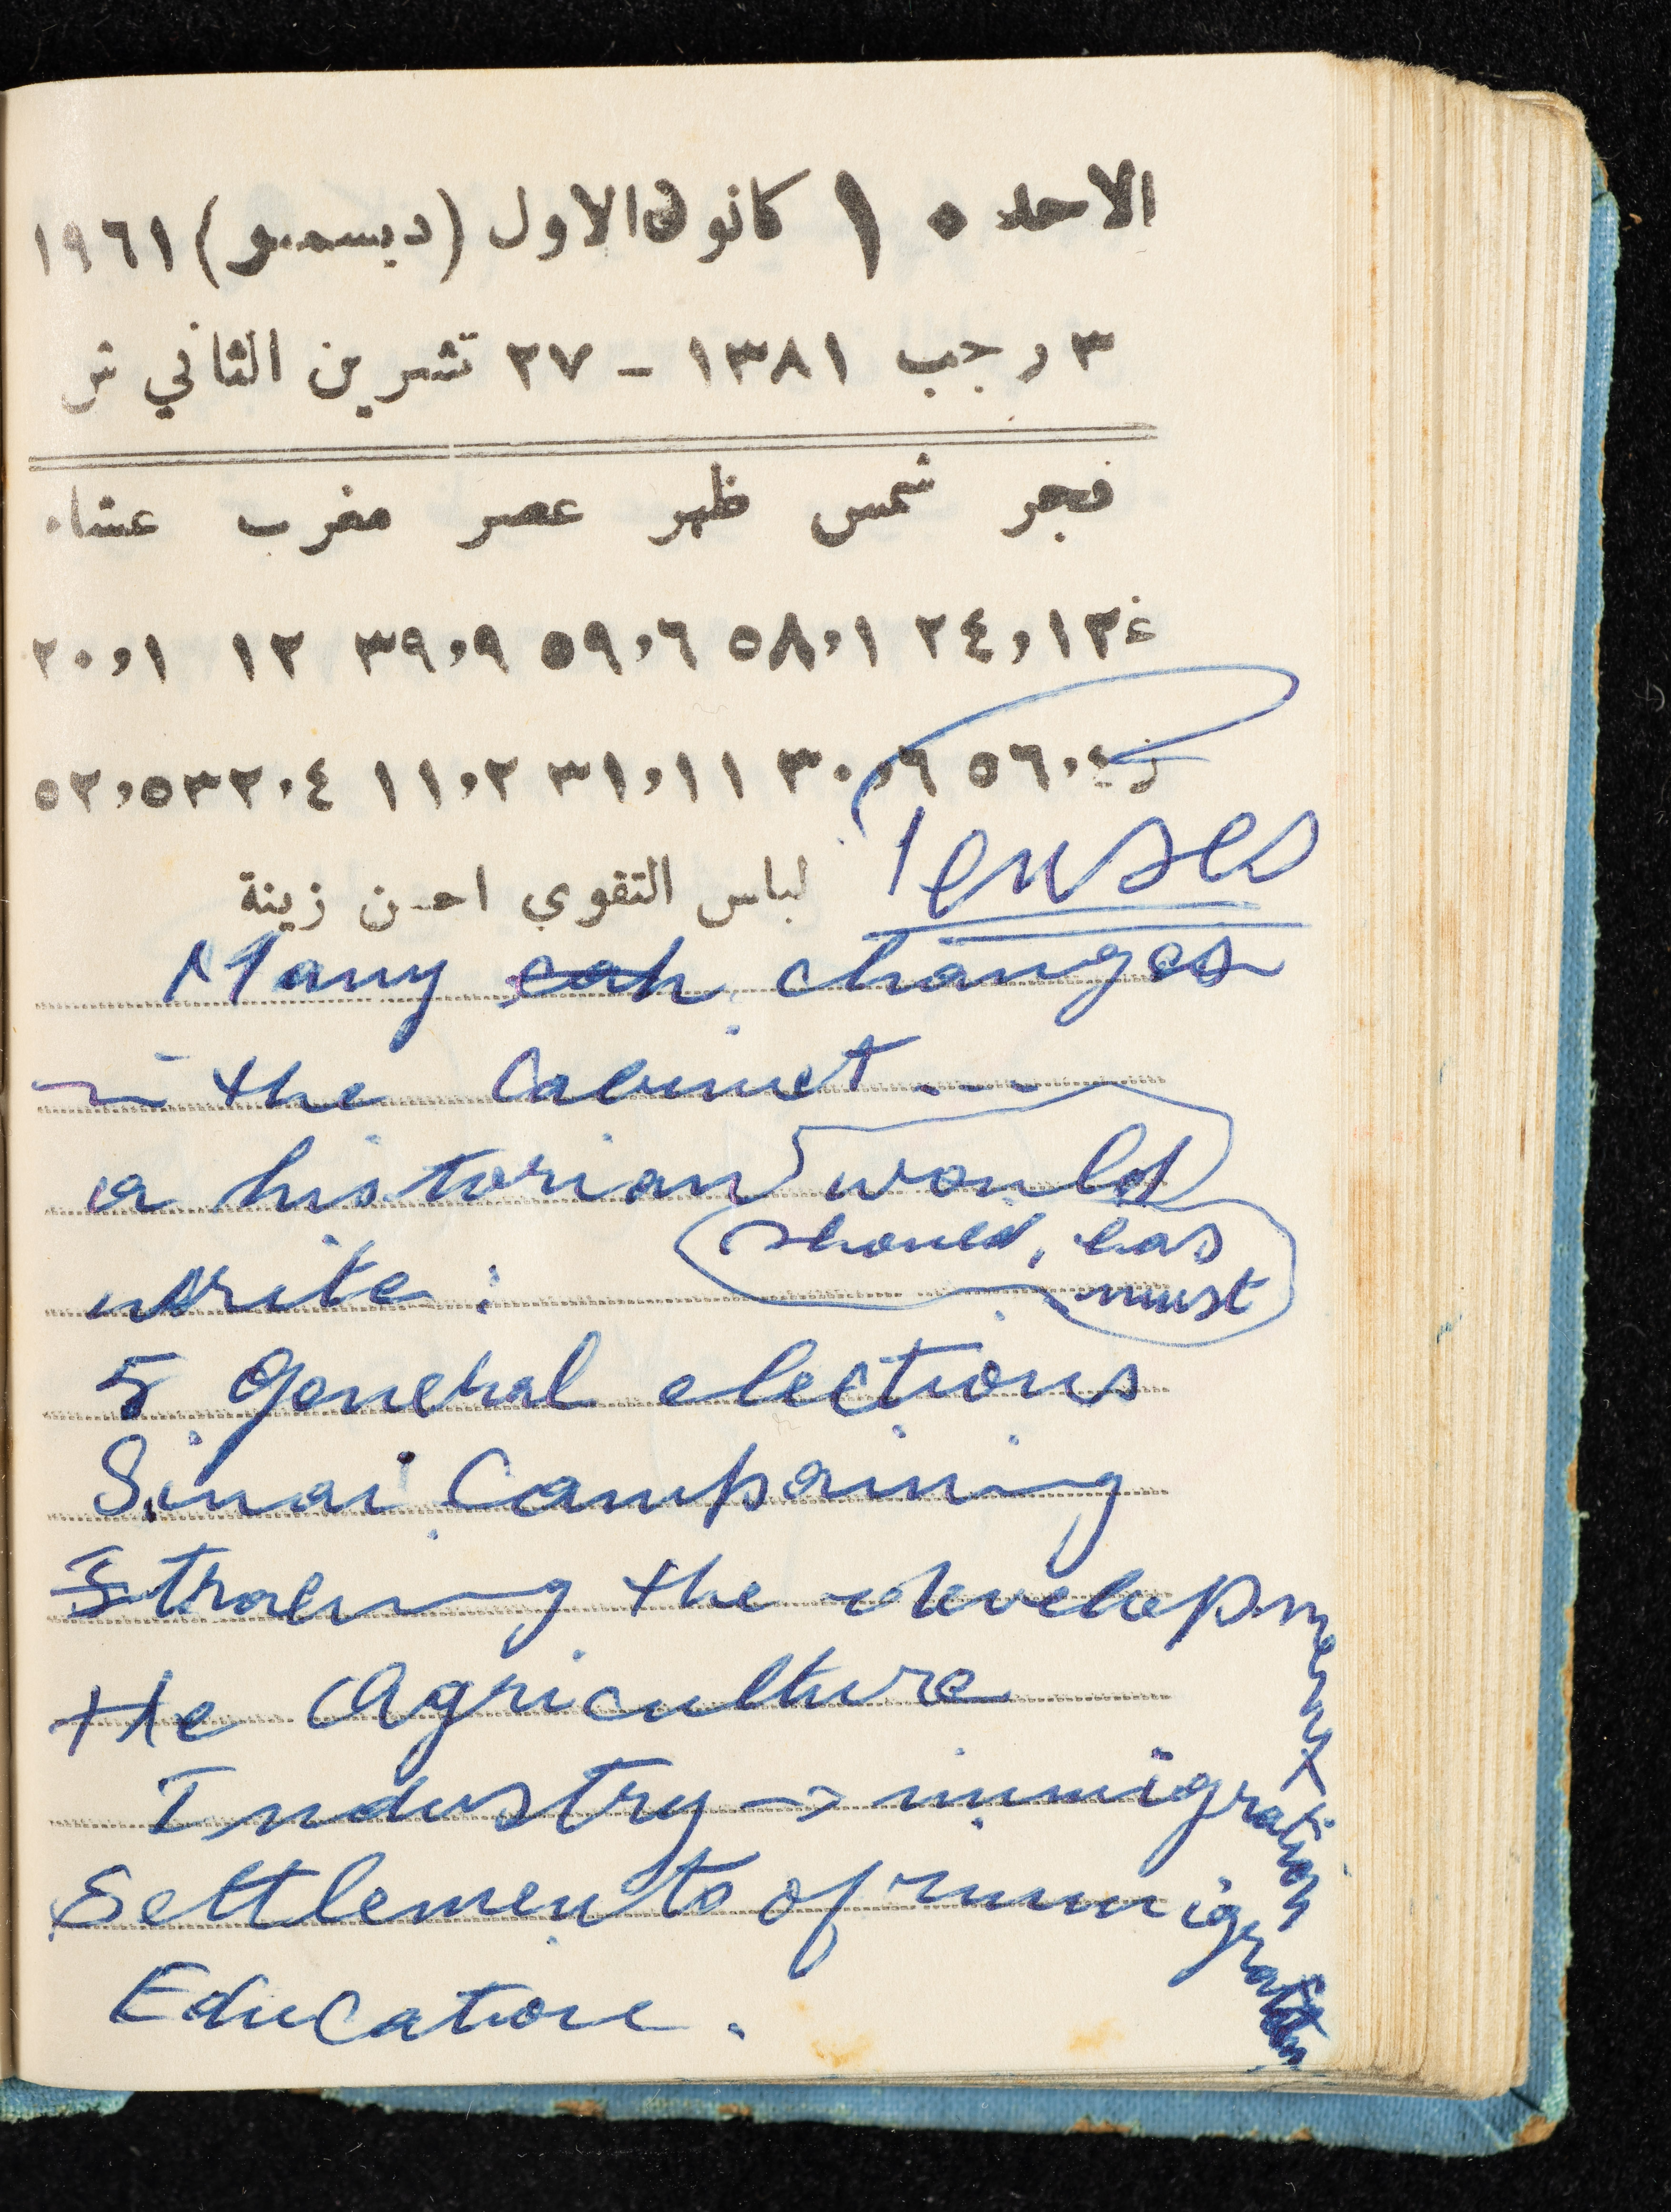 الاحد ١٠ كانون الاول (ديسمبر) ١٩٦١
٣ رجب ١٣٨١ - ٢٧ تشرين الثاني ش
فجر شمس ظهر عصر مغرب عشاء
غ ١٢,٢٤ ١,٥٨ ٦,٥٩ ٩,٣٩ ١٢ ١,٢٠
ز ٤,٥٦ ٦,٣٠ ١١,٣١ ٢,١١ ٤,٣٢ ٥,٥٢
لباس التقوي احسن زينة
Tenses
Many eah changes
in the Cabinet ---
a historian would
should, has
write :
must
5 General elections
Sinai Campaining
the development
the Agriculture
Industry → immigration
Settlements of immigration
Education.